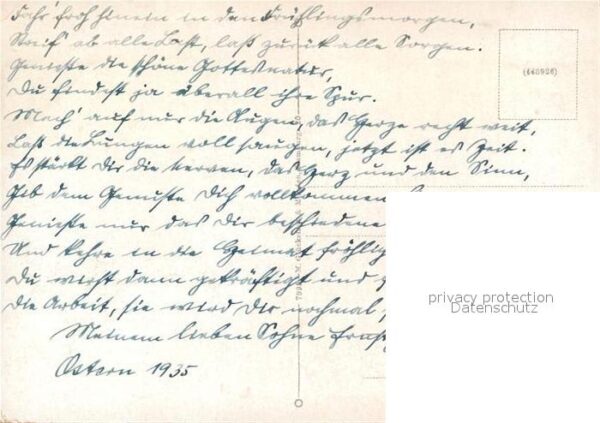 Fahr' froh hinein in den Frühlingsmorgen,
Streif' ab alle Last, laß zurück alle Sorgen.
Genieße die schöne Gottesnatur,
Du findest ja überall ihre Spur.
Mach' auf nur die Augen, das Herze recht weit,
Laß die Lungen voll saugen, jetzt ist es Zeit.
Es stärkt Dir die Nerven, das Herz und den Sinn,
Gib dem Genuße Dich vollkommen
Genieße nur das dir beschiedene
Und kehre in die Heimat fröhlig
Du wirst dann gekräftigt und
die Arbeit, sie wird Dir nochmal
Meinem lieben Sohne Ernst
Ostern 1935
(440926)
privacy protection
Datenschutz